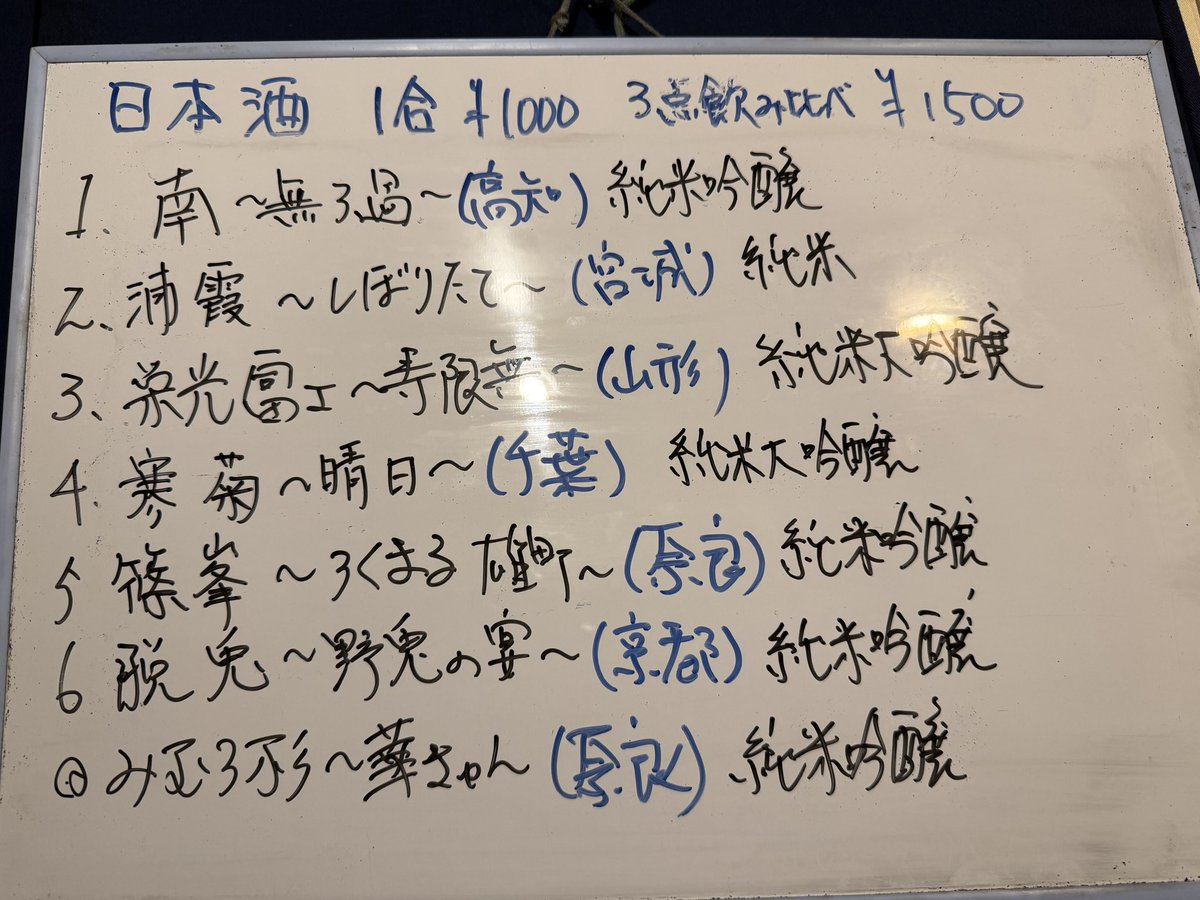 日本酒 1合 ¥1000 3点飲み比べ ¥1500
1. 南 ～無ろ過～(高知) 純米吟醸
2、浦霞 ～しぼりたて～ (宮城) 純米
3、栄光富士～寿限無～(山形) 純米大吟醸
4. 寒菊～晴日～(千葉) 純米大吟醸
5 篠峯 ～ろくまる 雄町～(奈良) 純米吟醸
6 脱兎～野兎の宴～(京都) 純米吟醸
みむろ杉～華ちゃん (奈良) 純米吟醸